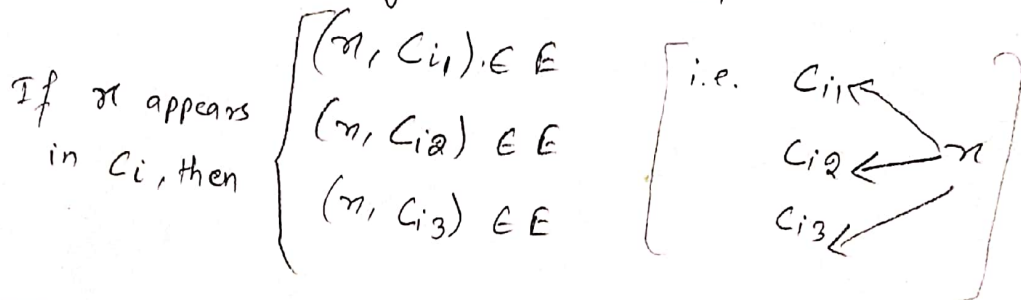 If x appears
in Ci, then
(x, Ci1) ∈ E
(x, Ci2) ∈ E
(x, Ci3) ∈ E
i.e.
Ci1
Ci2
Ci3
x